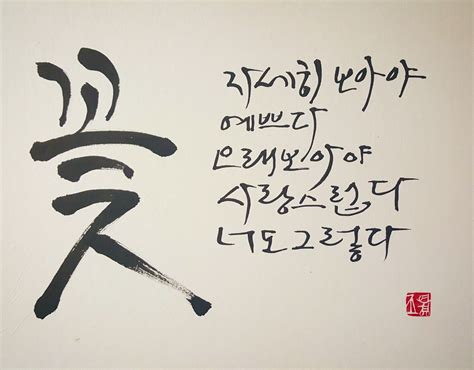 꽃
자세히 보아야
예쁘다
오래보아야
사랑스럽다
너도 그렇다